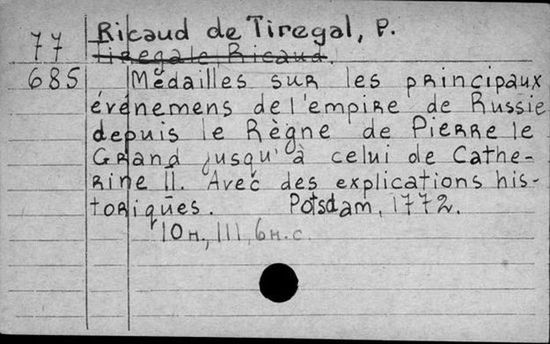 Ricaud de Tiregal, P.
77
Tiregale Ricaud.
685 Médailles sur les principaux
événemens de l'empire de Russie
depuis le Règne de Pierre le
Grand jusqu'à celui de Cathe-
rine II. Avec des explications his-
toriques. Potsdam, 1772.
10н., III, 6н.с